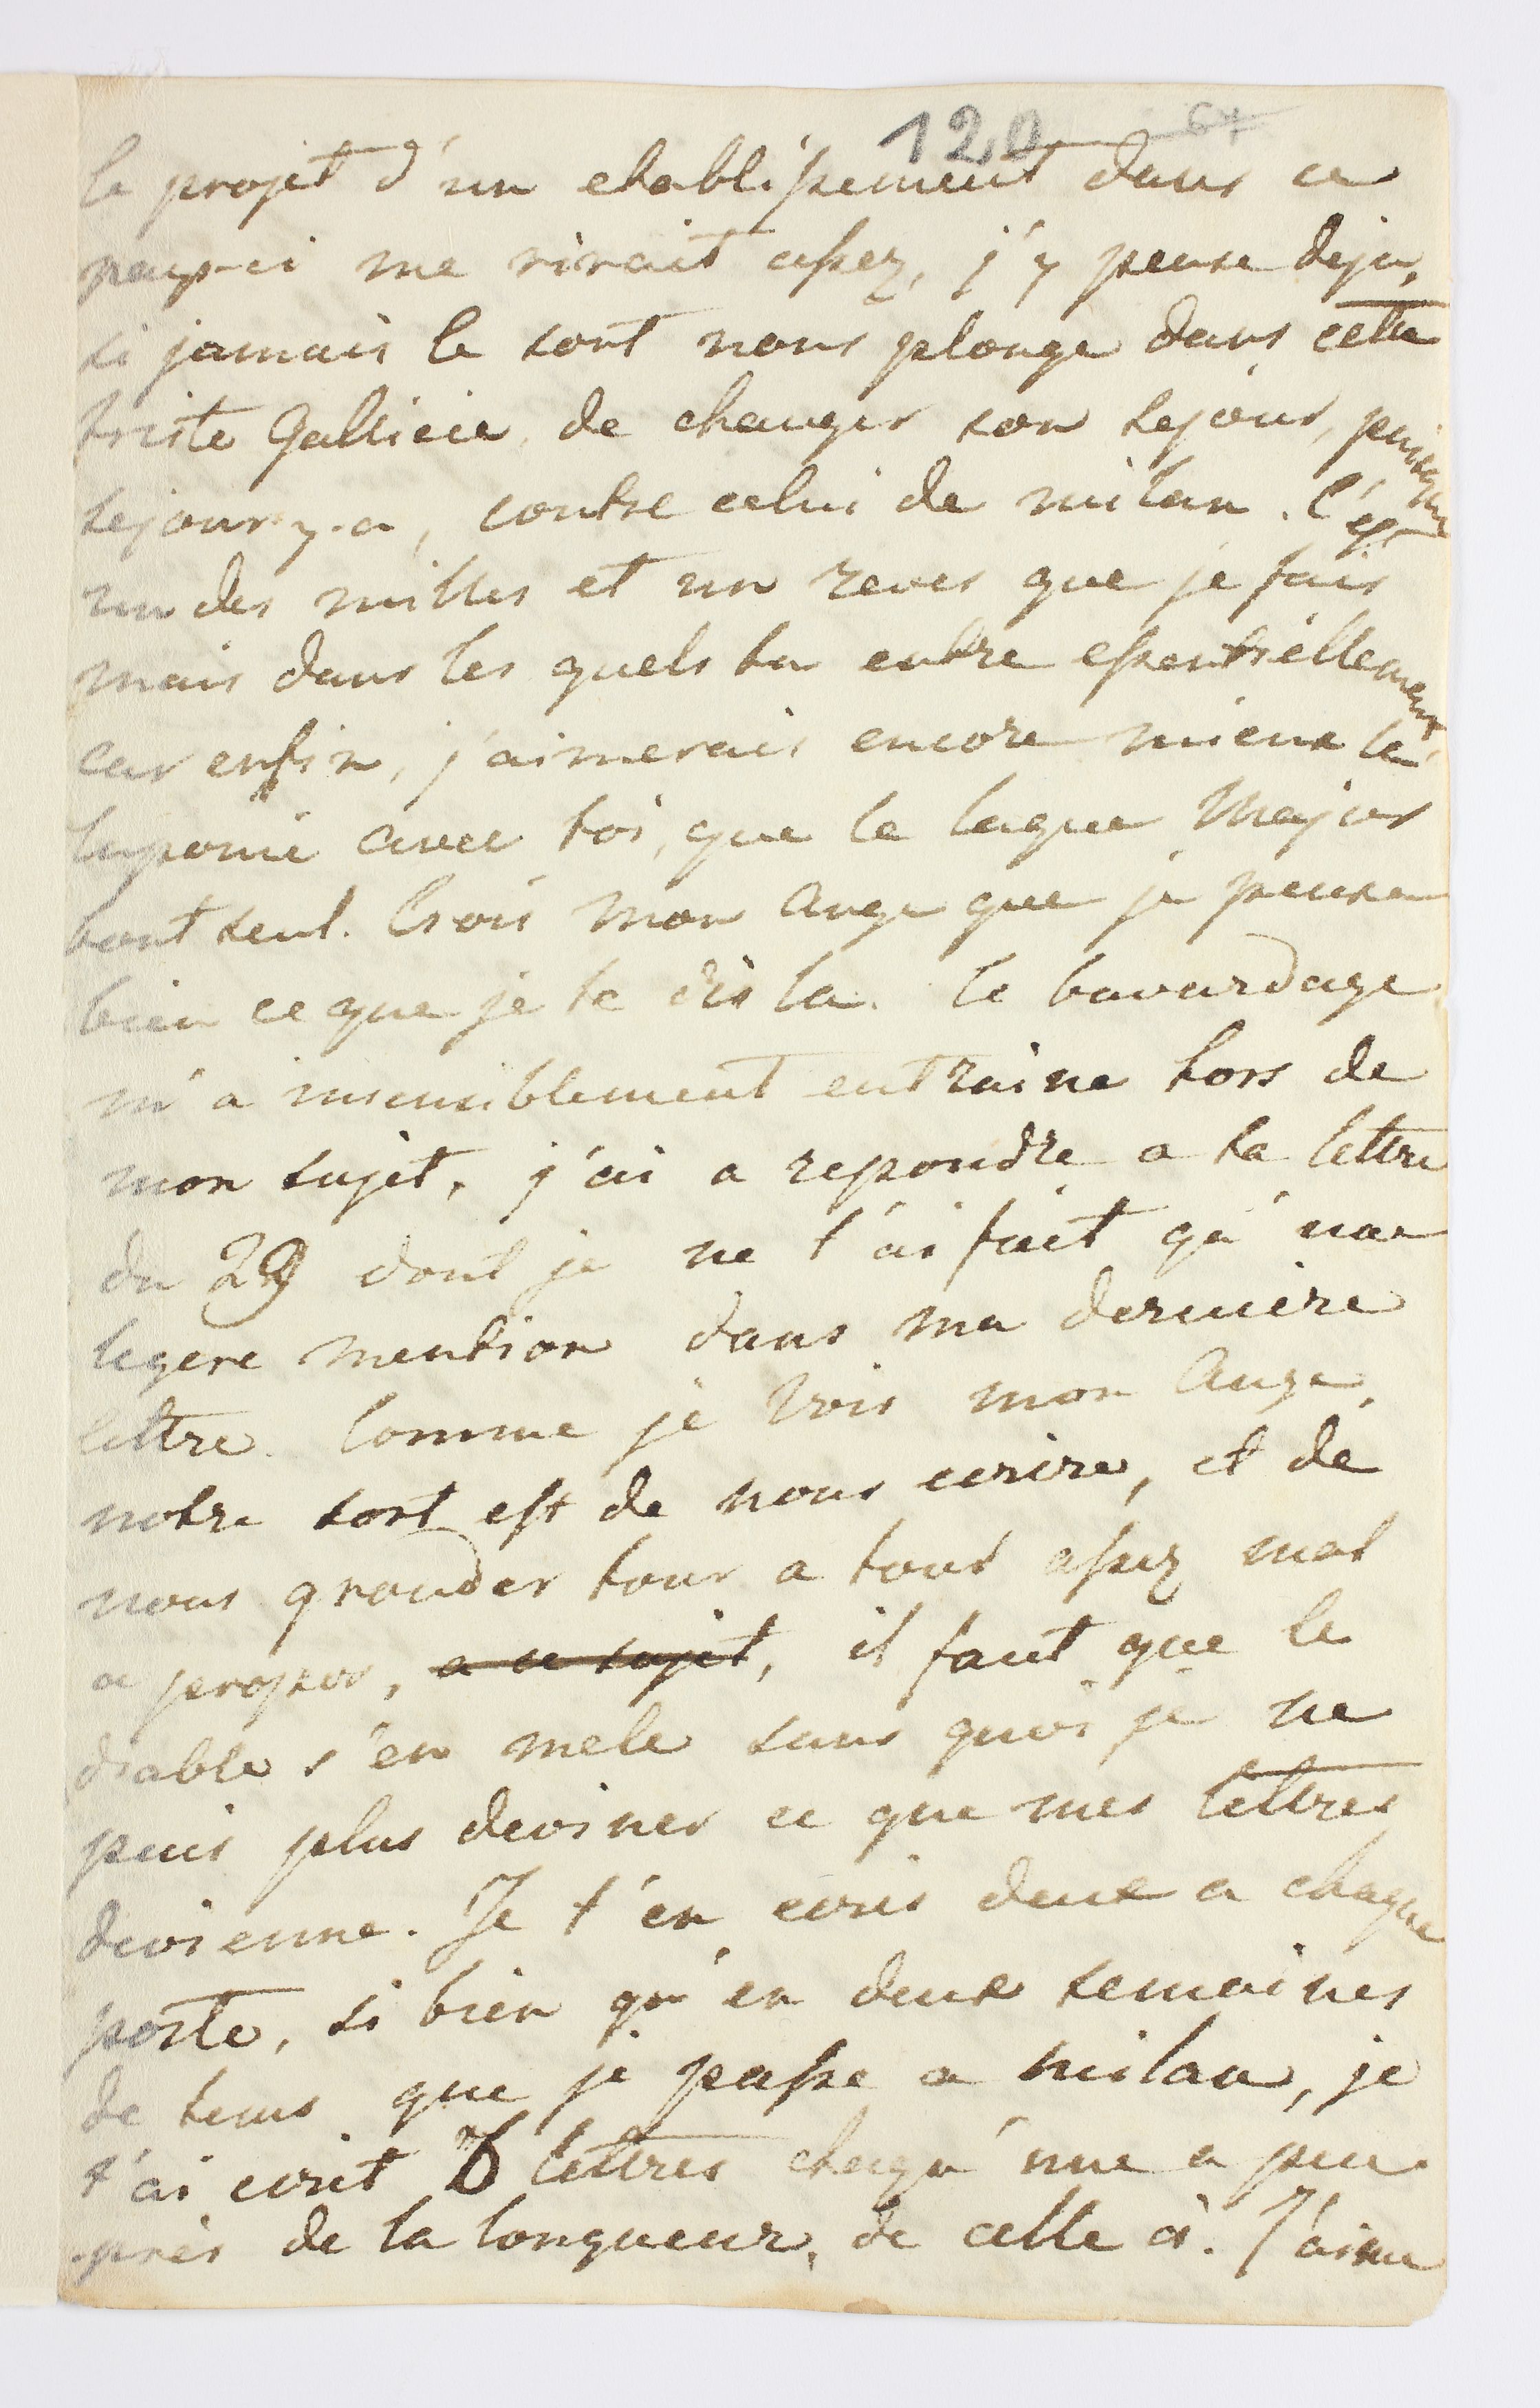 120 64
le projet d'un etablissement dans ce
pays-ci me rirait assez, j'y pense deja,
si jamais le sort nous plonge dans cette
triste Gallicie, de changer son sejour, puisque
sejour y-a, contre celui de milan. C'est
un des milles et un reves que je fais
mais dans les quels tu entre essentiellement,
car enfin, j'aimerais encore mieux la
laponie avec toi, que le lague Major
tout seul. Crois mon Ange que je pense
bien ce que je te dis la. le bavardage
m'a insensiblement entraine hors de
mon sujet, j'ai a repondre a ta lettre
du 29 dont je ne t'ai fait qu'une
legere mention dans ma derniere
lettre. Comme je vois mon Ange,
notre sort est de nous ecrire, et de
nous gronder tour a tour assez mal
a propos, a ce sujet, il faut que le
diable s'en mele sans quoi je ne
puis plus deviner ce que mes lettres
devienne. Je t'en ecris deux a chaque
poste, si bien qu'en deux semaines
de tems que je passe a milan, je
t'ai ecrit lettres chaqu'une a peu
près de la longueur, de celle ci. J'aime